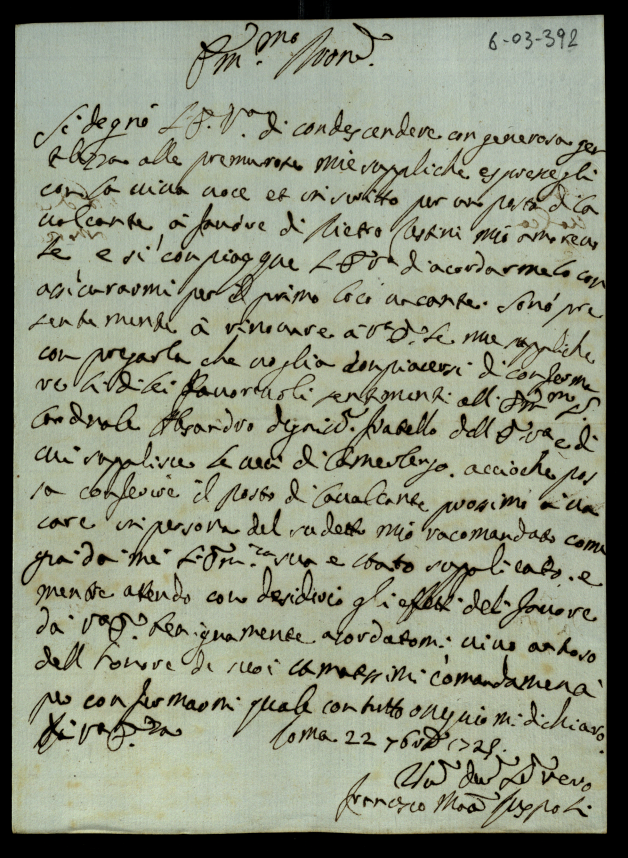 6-03-392
Em.mo Sig.re
Si degnò L'E. V.a di condescendere con generosa gen
tilezza alle premurose mie suppliche espressegli
con la viva voce et in scritto per un posto di ca
valcante à favore di Pietro mio amorevo
le e si compiacque L'E V.a di acordarmelo con
asicurarmi per il primo loco vacante. Sono pre
sentemente à rinovare à V.a E. le mie suppliche
con pregarla che voglia compiacersi di conferma
re li di lei favorevoli sentimenti all Em.mo S.
Cardinale Alesandro degnis.o fratello dell E. V.a e di
cui suplisce le veci di Camerlengo. acciòche pos
sa conferire il posto di Cavalcante prossimo à va
care in persona del sudetto mio racomandato come
già da me L'Em.za sua è stato supplicato. e
mentre attendo con desiderio gli effetti del favore
da V.a E. benignamente acordatomi vivo ansioso
dell honore de suoi stimatissimi comandamenti
per confermarmi quale con tutto ossequio mi dichiaro.
Di V.a E.za Roma 22 1725.
vero
Francesco Ma Ruspoli